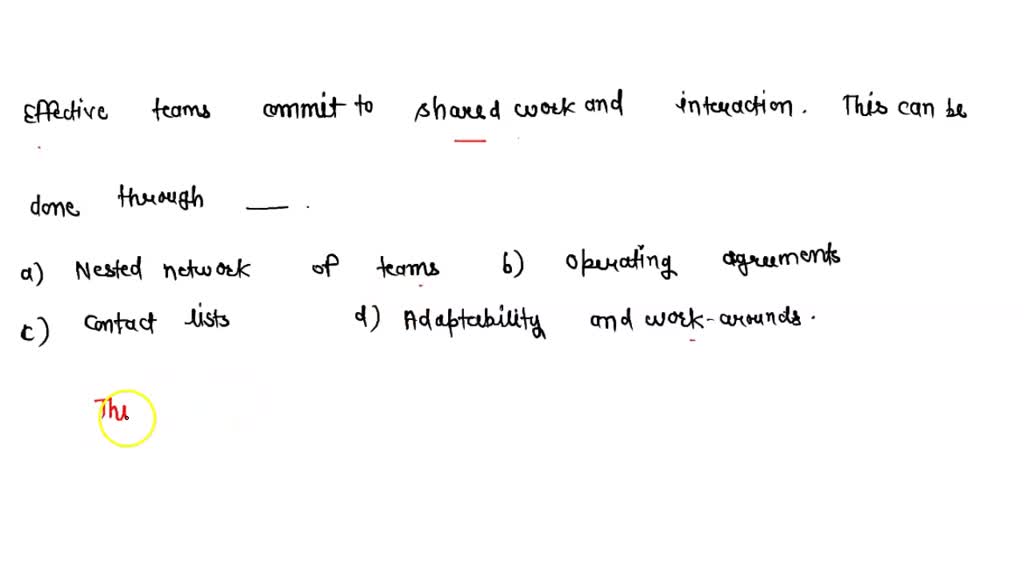 Effective teams commit to shared work and interaction. This can be
done through ___.
a) Nested network of teams b) Operating agreements
c) Contact lists d) Adaptability and work-arounds.
Thi